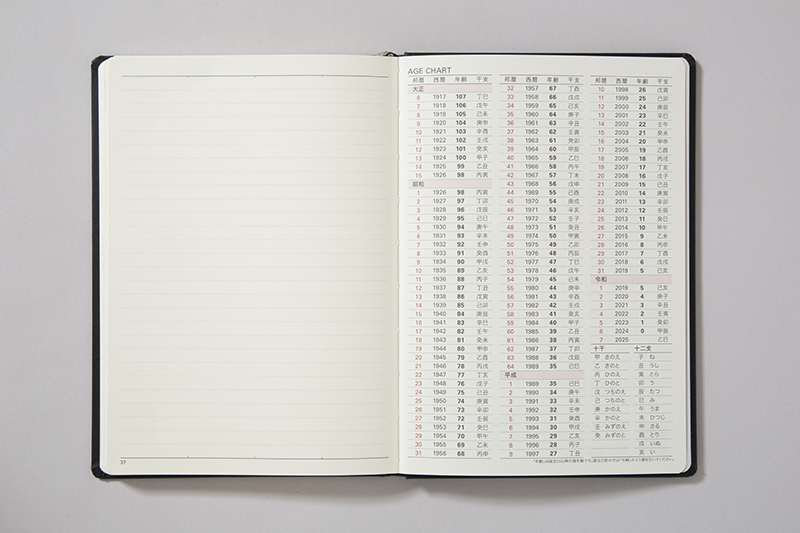 AGE CHART
邦暦 西暦 年齢 干支
大正
6 1917 107 丁巳
7 1918 106 戊午
8 1919 105 己未
9 1920 104 庚申
10 1921 103 辛酉
11 1922 102 壬戌
12 1923 101 癸亥
13 1924 100 甲子
14 1925 99 乙丑
15 1926 98 丙寅
昭和
1 1926 98 丙寅
2 1927 97 丁卯
3 1928 96 戊辰
4 1929 95 己巳
5 1930 94 庚午
6 1931 93 辛未
7 1932 92 壬申
8 1933 91 癸酉
9 1934 90 甲戌
10 1935 89 乙亥
11 1936 88 丙子
12 1937 87 丁丑
13 1938 86 戊寅
14 1939 85 己卯
15 1940 84 庚辰
16 1941 83 辛巳
17 1942 82 壬午
18 1943 81 癸未
19 1944 80 甲申
20 1945 79 乙酉
21 1946 78 丙戌
22 1947 77 丁亥
23 1948 76 戊子
24 1949 75 己丑
25 1950 74 庚寅
26 1951 73 辛卯
27 1952 72 壬辰
28 1953 71 癸巳
29 1954 70 甲午
30 1955 69 乙未
31 1956 68 丙申
邦暦 西暦 年齢 干支
32 1957 67 丁酉
33 1958 66 戊戌
34 1959 65 己亥
35 1960 64 庚子
36 1961 63 辛丑
37 1962 62 壬寅
38 1963 61 癸卯
39 1964 60 甲辰
40 1965 59 乙巳
41 1966 58 丙午
42 1967 57 丁未
43 1968 56 戊申
44 1969 55 己酉
45 1970 54 庚戌
46 1971 53 辛亥
47 1972 52 壬子
48 1973 51 癸丑
49 1974 50 甲寅
50 1975 49 乙卯
51 1976 48 丙辰
52 1977 47 丁巳
53 1978 46 戊午
54 1979 45 己未
55 1980 44 庚申
56 1981 43 辛酉
57 1982 42 壬戌
58 1983 41 癸亥
59 1984 40 甲子
60 1985 39 乙丑
61 1986 38 丙寅
62 1987 37 丁卯
63 1988 36 戊辰
64 1989 35 己巳
平成
1 1989 35 己巳
2 1990 34 庚午
3 1991 33 辛未
4 1992 32 壬申
5 1993 31 癸酉
6 1994 30 甲戌
7 1995 29 乙亥
8 1996 28 丙子
9 1997 27 丁丑
邦暦 西暦 年齢 干支
10 1998 26 戊寅
11 1999 25 己卯
12 2000 24 庚辰
13 2001 23 辛巳
14 2002 22 壬午
15 2003 21 癸未
16 2004 20 甲申
17 2005 19 乙酉
18 2006 18 丙戌
19 2007 17 丁亥
20 2008 16 戊子
21 2009 15 己丑
22 2010 14 庚寅
23 2011 13 辛卯
24 2012 12 壬辰
25 2013 11 癸巳
26 2014 10 甲午
27 2015 9 乙未
28 2016 8 丙申
29 2017 7 丁酉
30 2018 6 戊戌
31 2019 5 己亥
令和
1 2019 5 己亥
2 2020 4 庚子
3 2021 3 辛丑
4 2022 2 壬寅
5 2023 1 癸卯
6 2024 0 甲辰
7 2025 乙巳
十干 十二支
甲 きのえ 子 ね
乙 きのと 丑 うし
丙 ひのえ 寅 とら
丁 ひのと 卯 う
戊 つちのえ 辰 たつ
己 つちのと 巳 み
庚 かのえ 午 うま
辛 かのと 未 ひつじ
壬 みずのえ 申 さる
癸 みずのと 酉 とり
戌 いぬ
亥 い
37